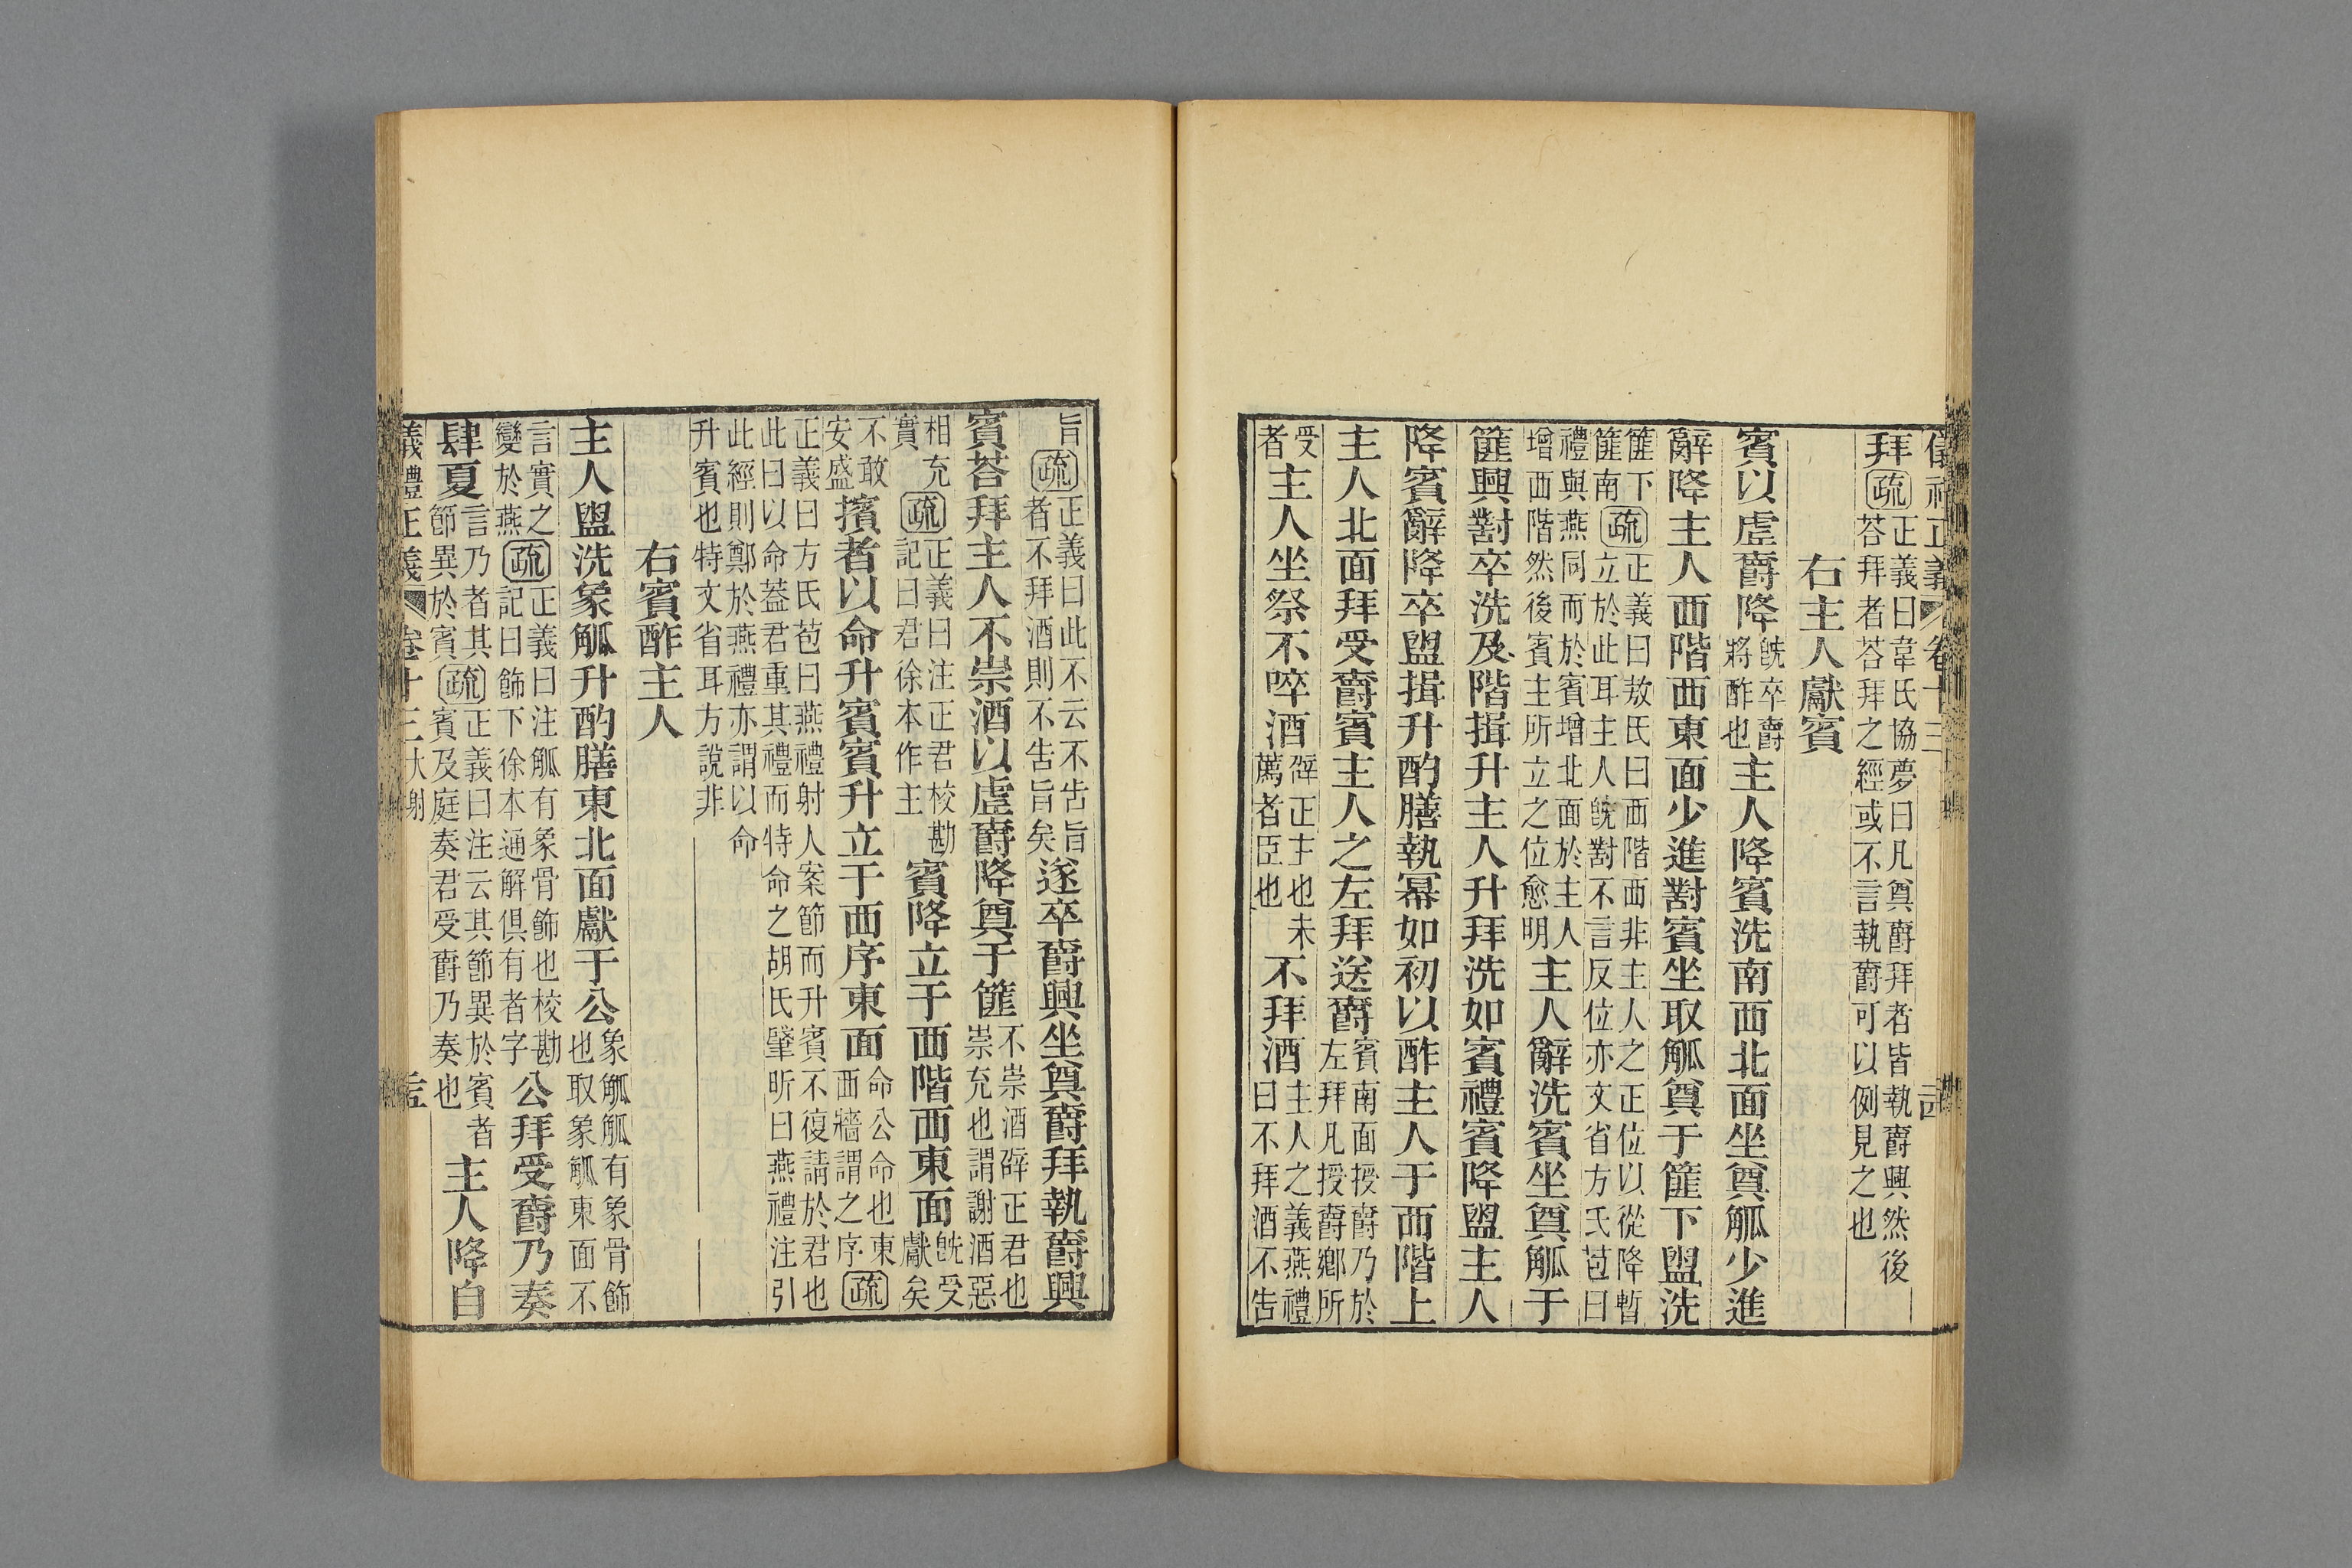 儀禮正義 卷十三
拜疏正義曰韋氏協夢曰凡奠爵拜者皆執爵興然後荅拜者荅拜之經或不言執爵可以例見之也
右主人獻賓
賓以虛爵降旣卒爵將酢也主人降賓洗南西北面坐奠觚少進
辭降主人西階西東面少進對賓坐取觚奠于篚下盥洗
篚下篚南疏正義曰敖氏曰西階西非主人之正位以從降暫立於此耳主人旣對不言反位亦文省方氏苞曰
禮與燕同而於賓增北面於主人增西階然後賓主所立之位愈明主人辭洗賓坐奠觚于
篚興對卒洗及階揖升主人升拜洗如賓禮賓降盥主人
降賓辭降卒盥揖升酌膳執冪如初以酢主人于西階上
主人北面拜受爵賓主人之左拜送爵賓南面授爵乃於左拜凡授爵鄉所
受者主人坐祭不啐酒辟正主也未薦者臣也不拜酒主人之義燕禮曰不拜酒不告
旨疏正義曰此不云不告旨者不拜酒則不告旨矣遂卒爵興坐奠爵拜執爵興
賓荅拜主人不崇酒以虛爵降奠于篚不崇酒辟正君也崇充也謂謝酒惡
相充實疏正義曰注正君校勘記曰君徐本作主賓降立于西階西東面旣受獻矣
不敢安盛擯者以命升賓賓升立于西序東面命公命也東西牆謂之序疏
正義曰方氏苞曰燕禮射人案節而升賓不復請於君也此曰以命蓋君重其禮而特命之胡氏肇昕曰燕禮注引
此經則鄭於燕禮亦謂以命升賓也特文省耳方說非
右賓酢主人
主人盥洗象觚升酌膳東北面獻于公象觚觚有象骨飾也取象觚東面不
言實之變於燕疏正義曰注觚有象骨飾也校勘記曰飾下徐本通解俱有者字公拜受爵乃奏
肆夏言乃者其節異於賓疏正義曰注云其節異於賓者賓及庭奏君受爵乃奏也主人降自
義禮正義 卷十三 大射